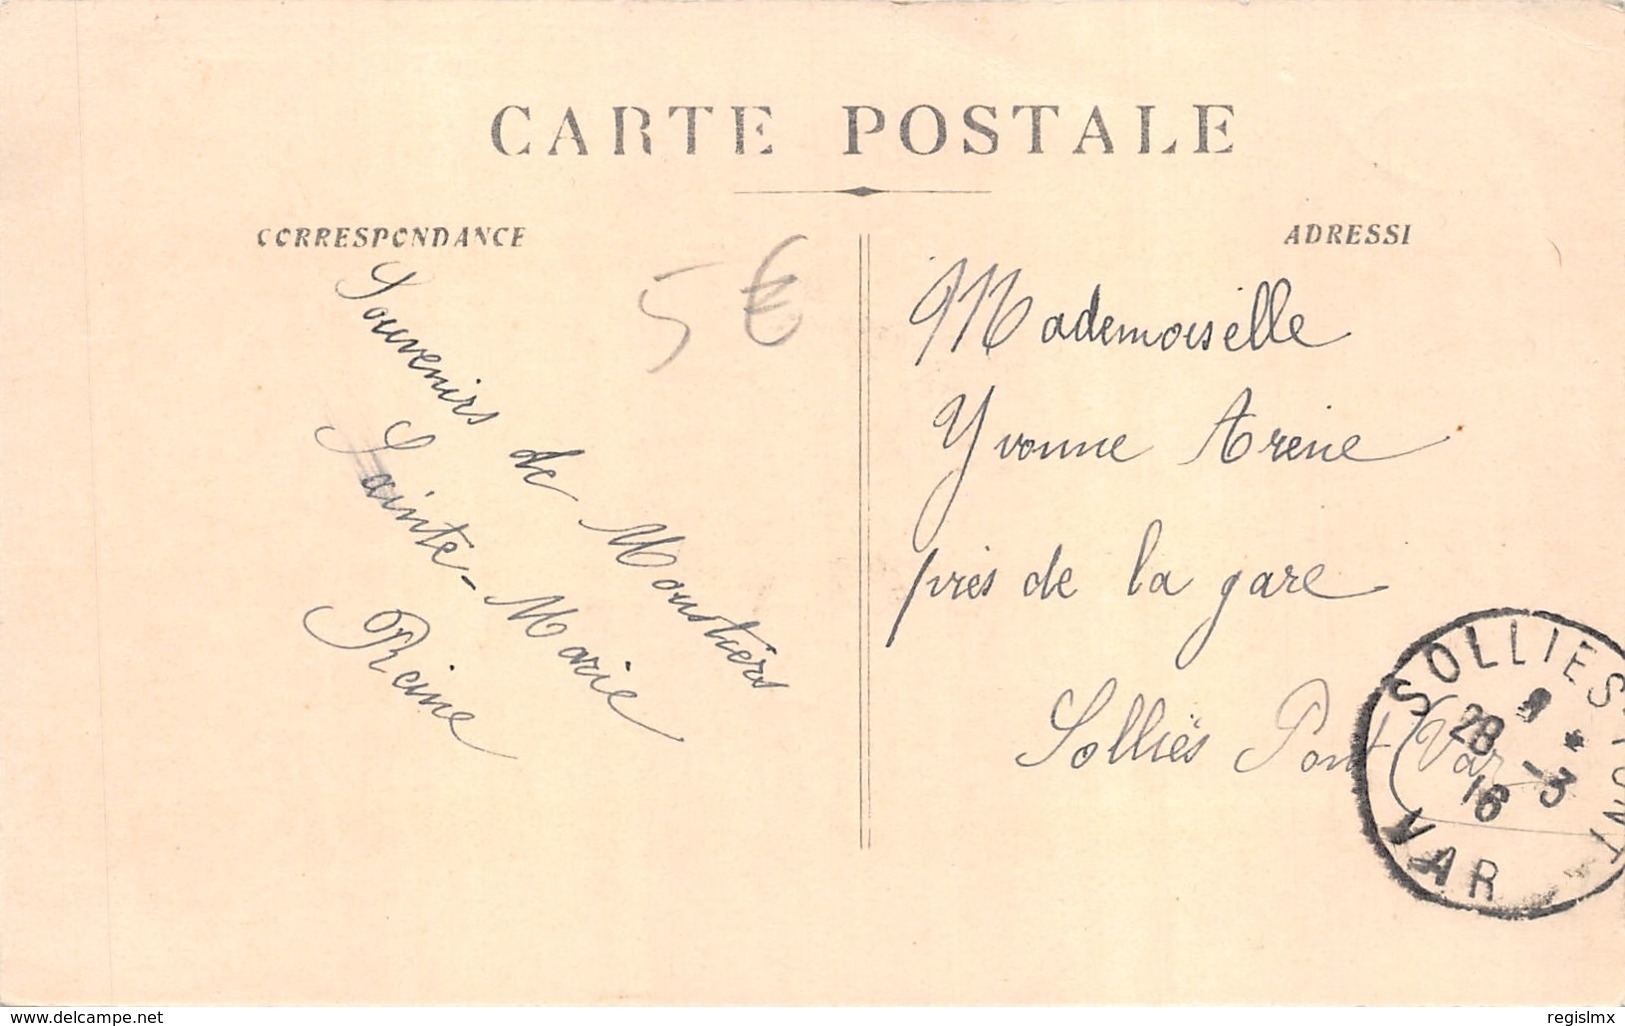 CARTE POSTALE
CORRESPONDANCE
ADRESSE
5€
Souvenirs de Moustiers
Sainte-Marie
Reine
Mademoiselle
Yvonne Arène
près de la gare
Solliès Pont (Var)
SOLLIES-PONT
28 -3
16
VAR
www.delcampe.net
regislmx